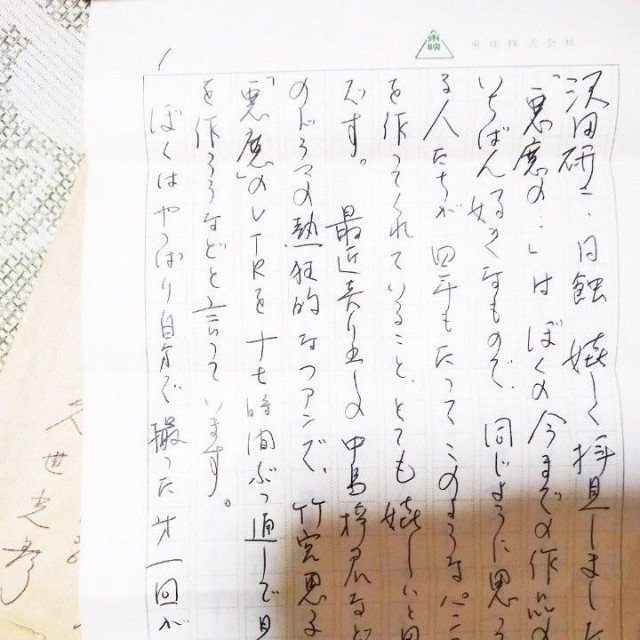 東映株式会社
沢田研二・日蝕 嬉しく拝見しました
「悪魔の…」は ぼくの今までの作品の
いちばん好きなもので、同じように思う
る人たちが 四年もたって このような パン
を作ってくれていること、とても嬉しいと
です。 最近売り出しの中島梓君など
のドラマの熱狂的なファンで、竹宮恵
「悪魔」のVTRを十七時間ぶっ通しで見
を作ろうなどと言っています。
ぼくはやっぱり自分で撮った才一回が
久世光彦